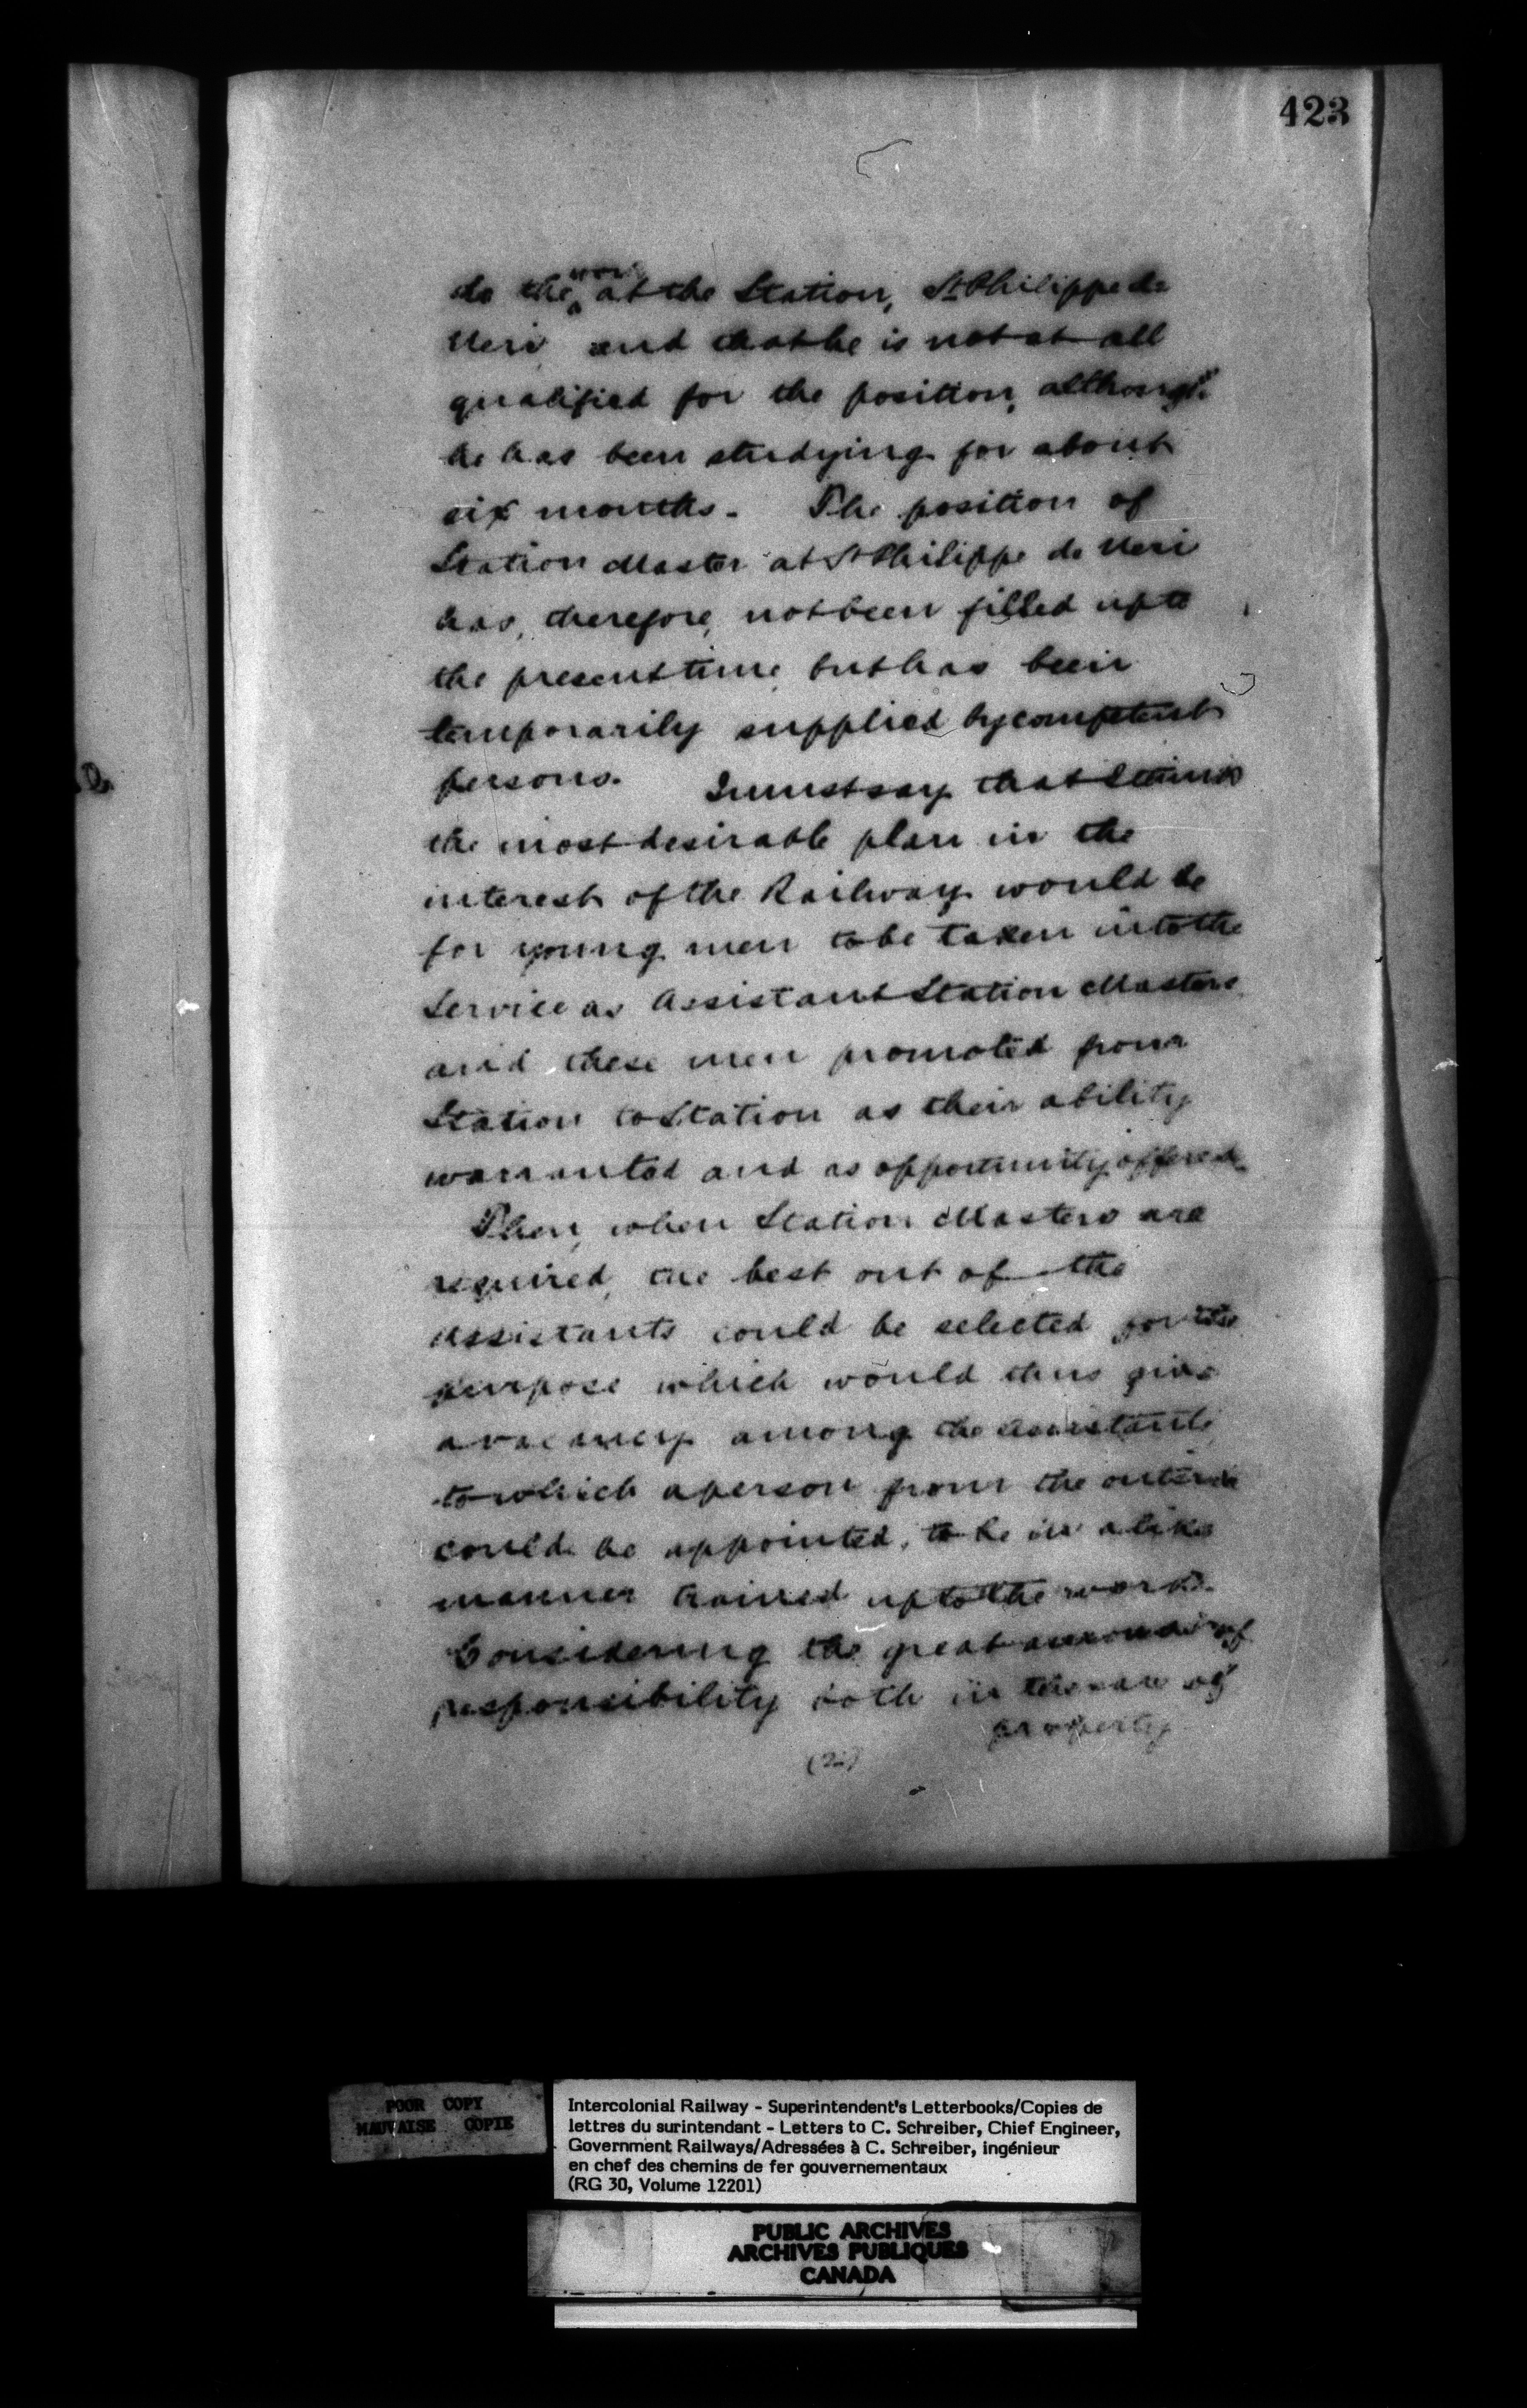 423
do the work at the Station, St Philippe de
Neri and that he is not at all
qualified for the position, although
he has been studying for about
six months. The position of
Station Master at St Philippe de Neri
has, therefore, not been filled up to
the present time but has been
temporarily supplied by competent
persons. I must say that I think
the most desirable plan in the
interest of the Railway would be
for young men to be taken into the
Service as Assistant Station Masters
and these men promoted from
Station to Station as their ability
warranted and as opportunity offered.
Then, when Station Masters are
required, the best out of the
Assistants could be selected for the
purpose which would thus give
a vacancy among the Assistants
to which a person from the outside
could be appointed, to be in a like
manner trained up to the work.
Considering the great amount of
responsibility both in the care of
property
(2)
POOR COPY
MAUVAISE COPIE
Intercolonial Railway - Superintendent's Letterbooks/Copies de
lettres du surintendant - Letters to C. Schreiber, Chief Engineer,
Government Railways/Adressées à C. Schreiber, ingénieur
en chef des chemins de fer gouvernementaux
(RG 30, Volume 12201)
PUBLIC ARCHIVES
ARCHIVES PUBLIQUES
CANADA